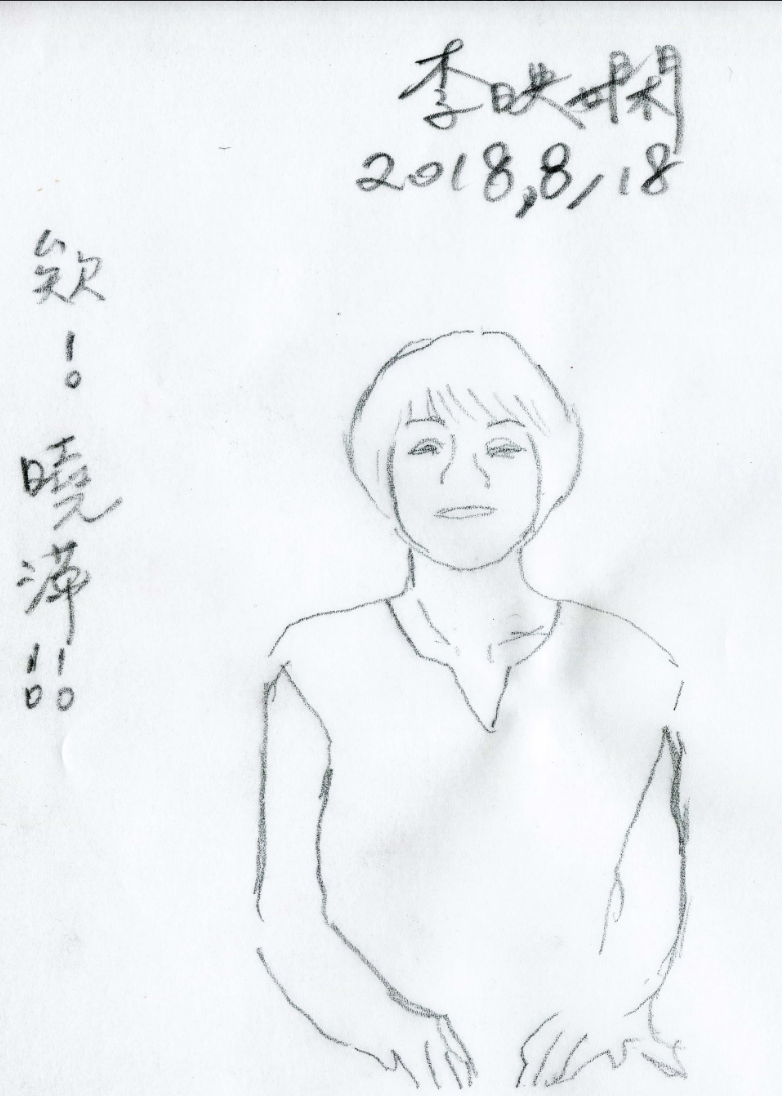 李映嫻
2018,8,18
欸！曉萍!!